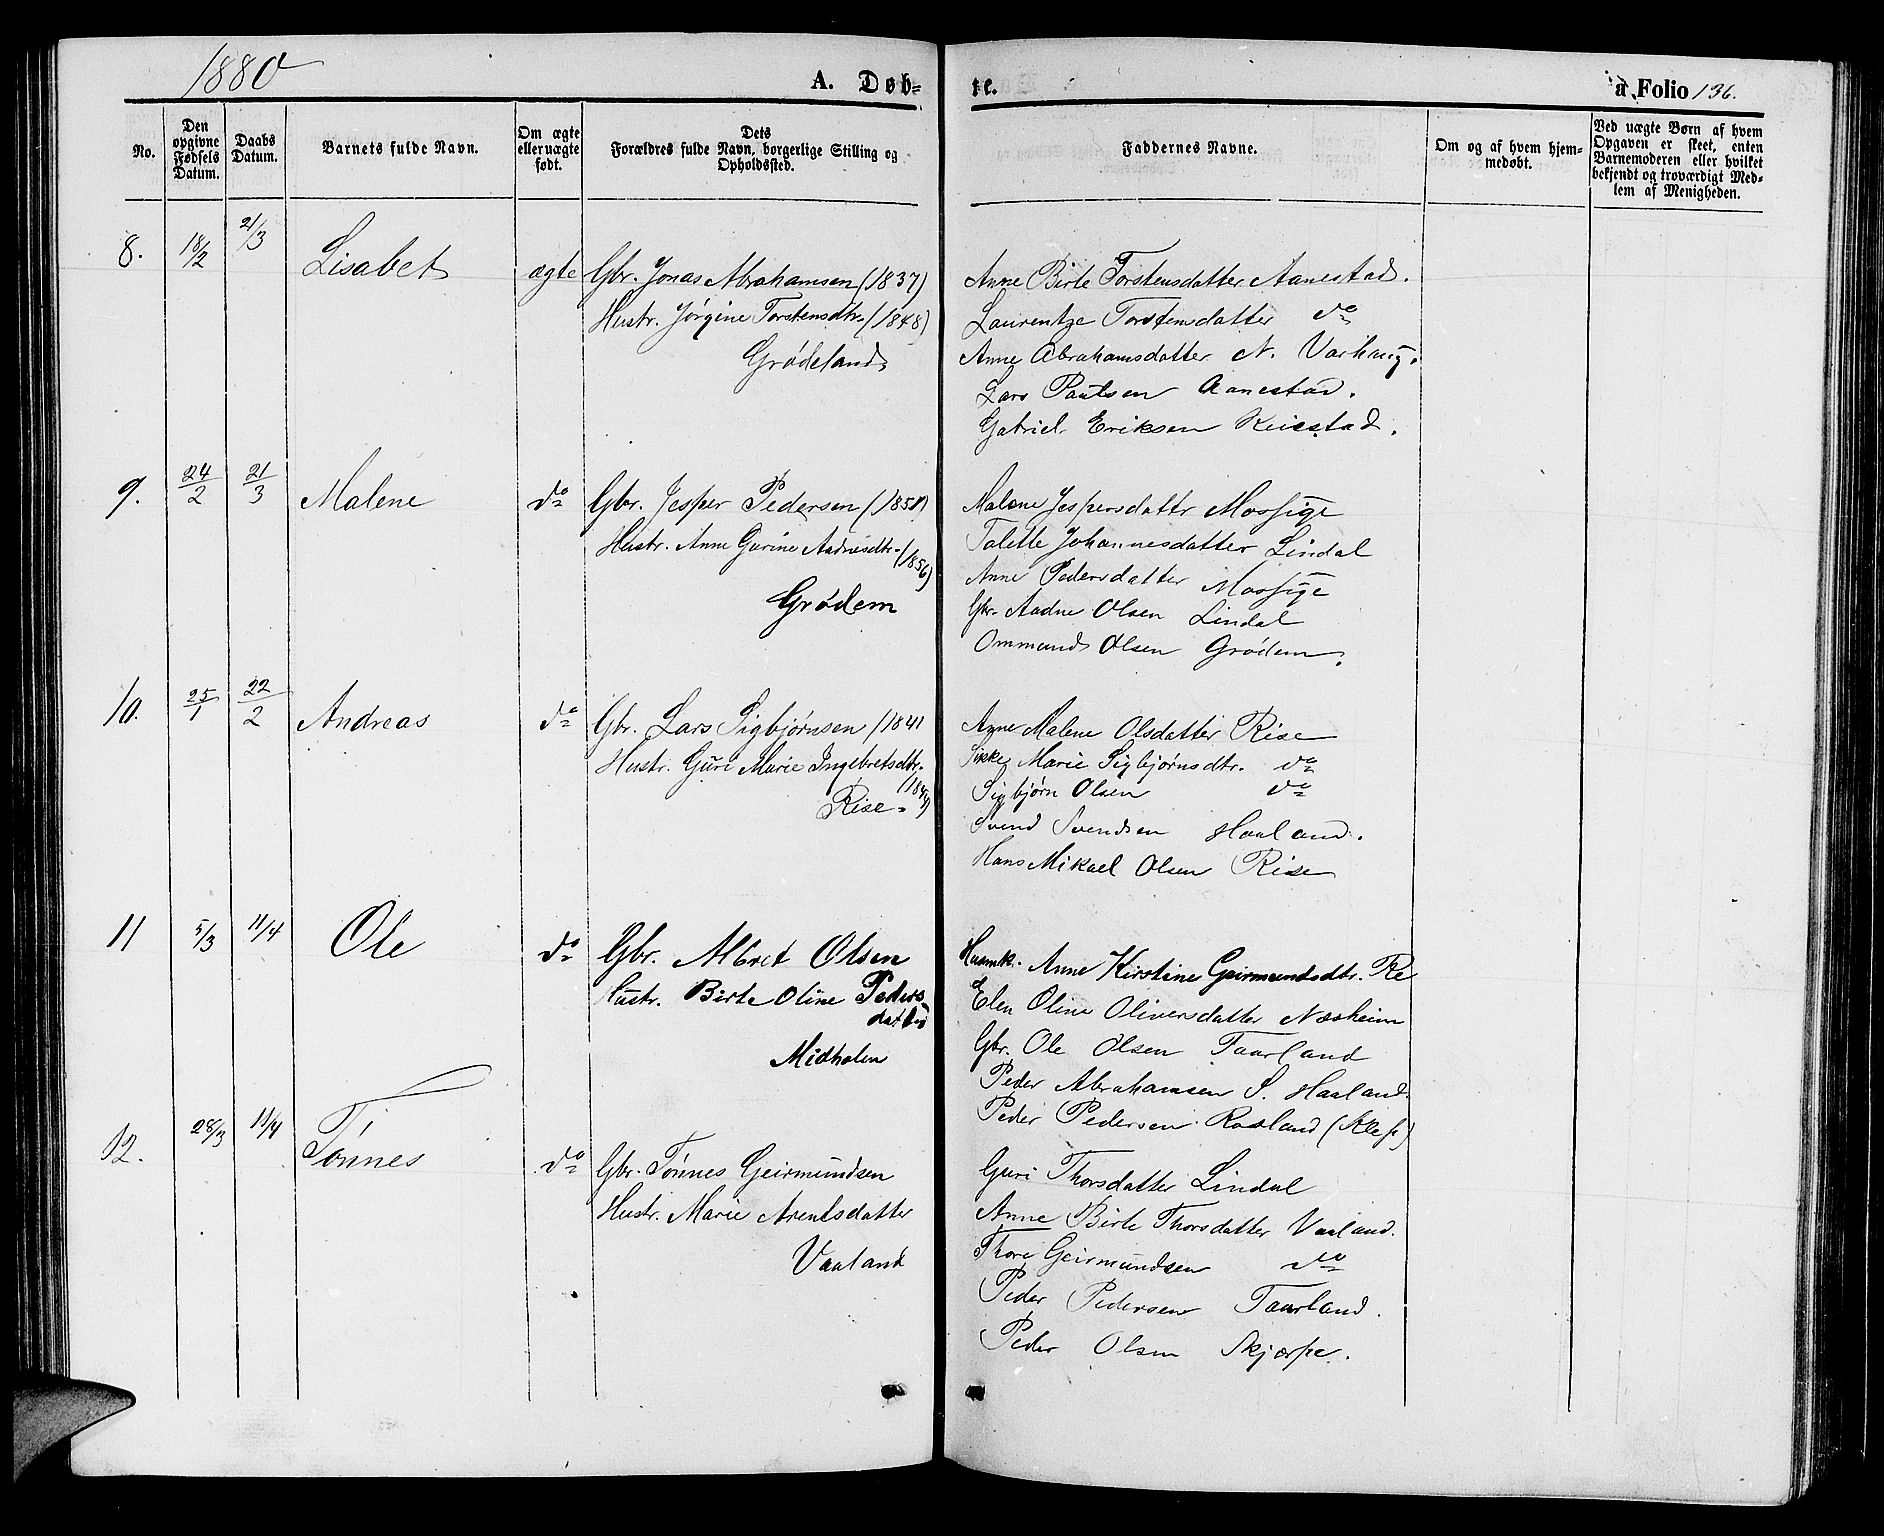 1880
A. Døb=
te.
a Folio 136.
No.
Den opgivne Fødsels Datum.
Daabs Datum.
Barnets fulde Navn.
Om ægte eller uægte født.
Dets Forældres fulde Navn, borgerlige Stilling og Opholdssted.
Faddernes Navne.
Om og af hvem hjem=medøbt.
Ved uægte Børn af hvem Opgaven er skeet, enten Barnemoderen eller hvilket bekjendt og troværdigt Med=lem af Menigheden.
8. 18/2 21/3 Lisabet ægte Gbr. Jonas Abrahamsen (1837)
Hustr. Jørgine Torstensdtr. (1848)
Grødeland
Anne Birte Torstensdatter Aanestad.
Laurentze Torstensdatter do
Anne Abrahamsdatter N. Varhaug.
Lars Paulsen Aanestad.
Gabriel Eriksen
9. 24/2 21/3 Malene do Gbr. Jesper Pedersen
Hustr. Anne Gurine Aadnesdtr. (1856)
Grødem
Malene Jespersdattr Mossige
Talette Johannesdatter Lindal
Anne Pedersdatter Mossige
Gbr. Aadne Olsen Lindal
Ommund Olsen Grødem.
10. 25/1 22/2 Andreas do Gbr. Lars Sigbjørnsen (1841
Hustr. Guri Marie Ingebretsdtr.
Rise
Anne Malene Olsdatter Rise
Sikke Marie Sigbjørnsdtr. do
Sigbjørn Olsen do
Svend Svendsen Haaland.
Hans Mikael Olsen Rise
11 5/3 11/4 Ole do Gbr. Albret Olsen
Hustr. Birte Oline Peders=
datter
Midholen
Husmk. Anne Kirstine Geirmundsdtr. Re
Elen Oline Oliversdatter Næsheim
Gbr. Ole Olsen Taarland
Peder Abrahamsen S. Haaland.
Peder Pedersen Rosland (Klep)
12. 28/3 11/4 Tønnes do Gbr. Tønnes Geirmundsen
Hustr. Marie Arentsdatter
Vaaland
Guri Thorsdatter Lindal
Anne Birte Thorsdatter Vaaland.
Thore Geirmundsen do
Peder Pedersen Taarland.
Peder Olsen Skjærpe.